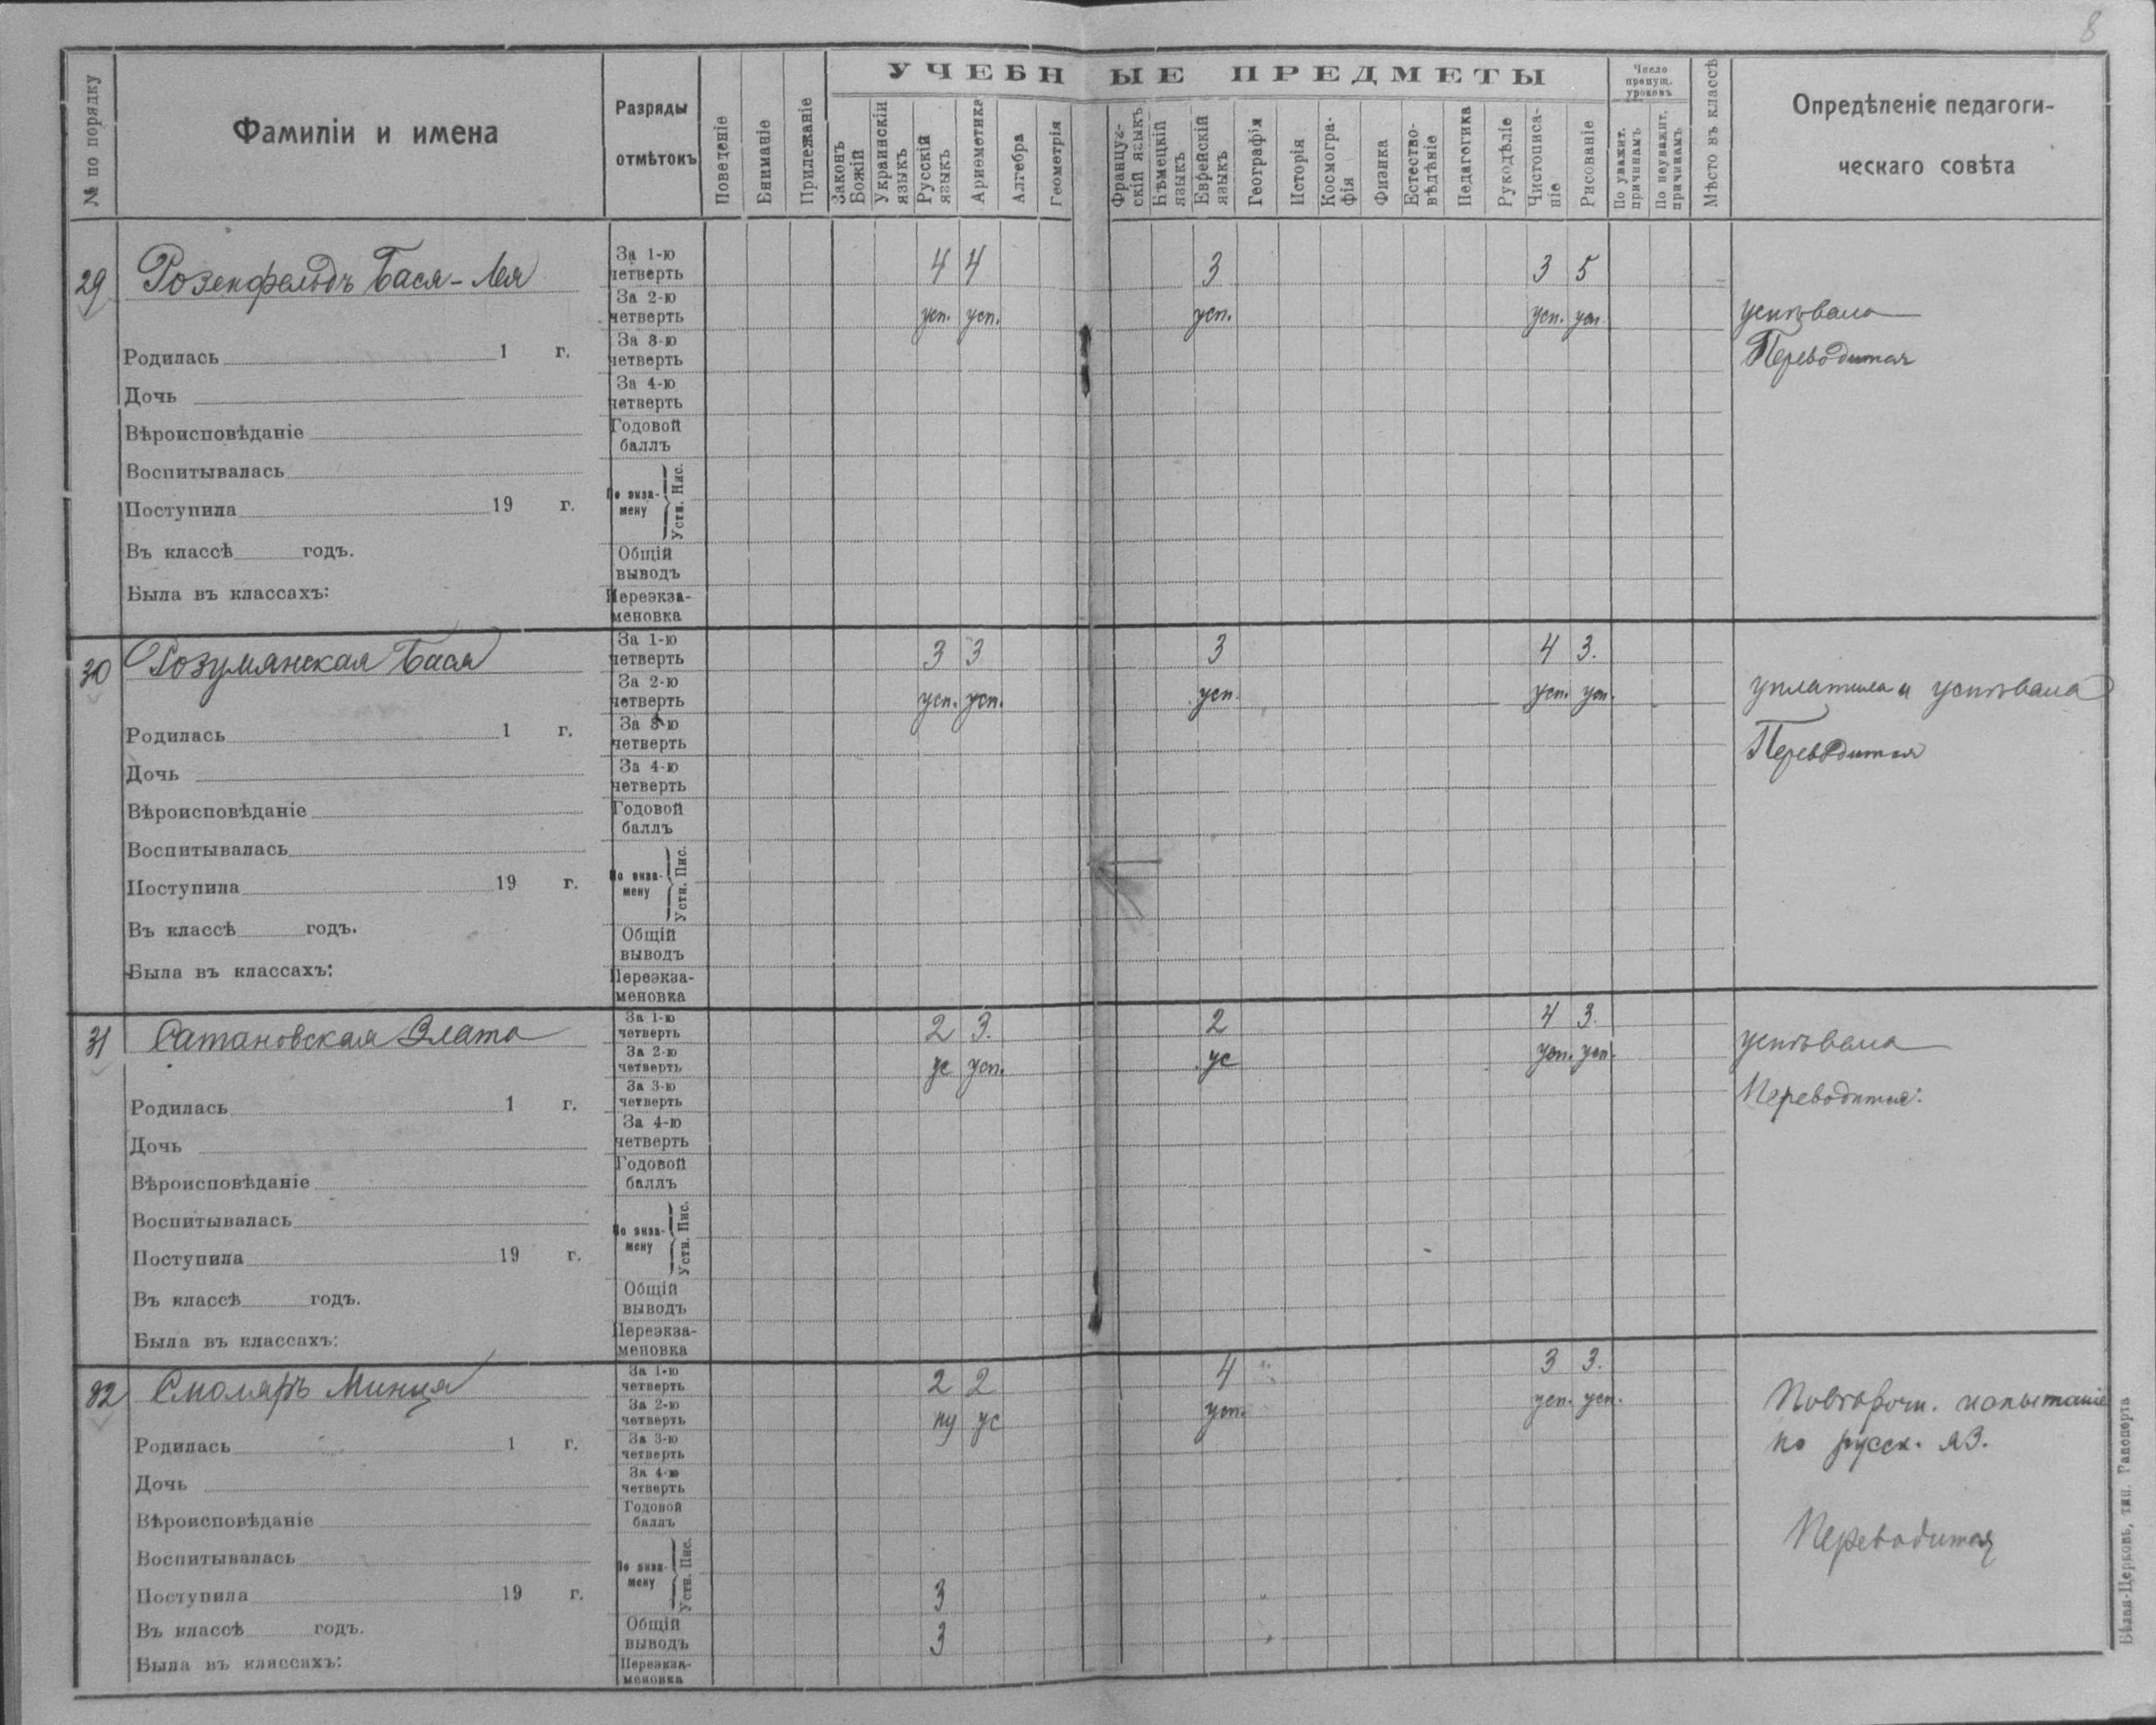 8
№ по порядку
Фамиліи и имена
Разряды
отмѣтокъ
Поведеніе
Вниманіе
Прилежаніе
УЧЕБНЫЕ ПРЕДМЕТЫ
Законъ
Божій
Украинскій
языкъ
Русскій
языкъ
Ариѳметика
Алгебра
Геометрія
Француз-
скій языкъ
Нѣмецкій
языкъ
Еврейскій
языкъ
Географія
Исторія
Космогра-
фія
Физика
Естество-
вѣдѣніе
Педагогика
Рукодѣліе
Чистописа-
ніе
Рисованіе
Число
пропущ.
уроковъ
По уважит.
причинамъ
По неуважит.
причинамъ
Мѣсто въ классѣ
Опредѣленіе педагоги-
ческаго совѣта
29 Розенфельдъ Бася-Лея
За 1-ю
четверть
4 4 3 3 5
За 2-ю
четверть
усп. усп. усп. усп. усп.
успѣвала
Переводится
За 3-ю
четверть
За 4-ю
четверть
Годовой
баллъ
По экза-
мену
Устн. Пис.
Общій
выводъ
Переэкза-
меновка
Родилась 1 г.
Дочь
Вѣроисповѣданіе
Воспитывалась
Поступила 19 г.
Въ классѣ годъ.
Была въ классахъ:
30 Розумянская Бася
За 1-ю
четверть
3 3 3 4 3.
За 2-ю
четверть
усп. усп. усп. усп. усп.
уплатила и успѣвала
Переводится
За 3-ю
четверть
За 4-ю
четверть
Годовой
баллъ
По экза-
мену
Устн. Пис.
Общій
выводъ
Переэкза-
меновка
Родилась 1 г.
Дочь
Вѣроисповѣданіе
Воспитывалась
Поступила 19 г.
Въ классѣ годъ.
Была въ классахъ:
31 Сатановская Злата
За 1-ю
четверть
2 3. 2 4 3.
За 2-ю
четверть
ус усп. ус усп. усп.
успѣвала
Переводится.
За 3-ю
четверть
За 4-ю
четверть
Годовой
баллъ
По экза-
мену
Устн. Пис.
Общій
выводъ
Переэкза-
меновка
Родилась 1 г.
Дочь
Вѣроисповѣданіе
Воспитывалась
Поступила 19 г.
Въ классѣ годъ.
Была въ классахъ:
32 Смоляръ Минця
За 1-ю
четверть
2 2 4 3 3.
За 2-ю
четверть
ну ус усп. усп. усп.
Повторочн. испытаніе
по русск. яз.
Переводится
За 3-ю
четверть
За 4-ю
четверть
Годовой
баллъ
По экза-
мену
Устн. Пис.
3
Общій
выводъ
3
Переэкза-
меновка
Родилась 1 г.
Дочь
Вѣроисповѣданіе
Воспитывалась
Поступила 19 г.
Въ классѣ годъ.
Была въ классахъ:
Бѣлая-Церковь, тип. Рапопорта